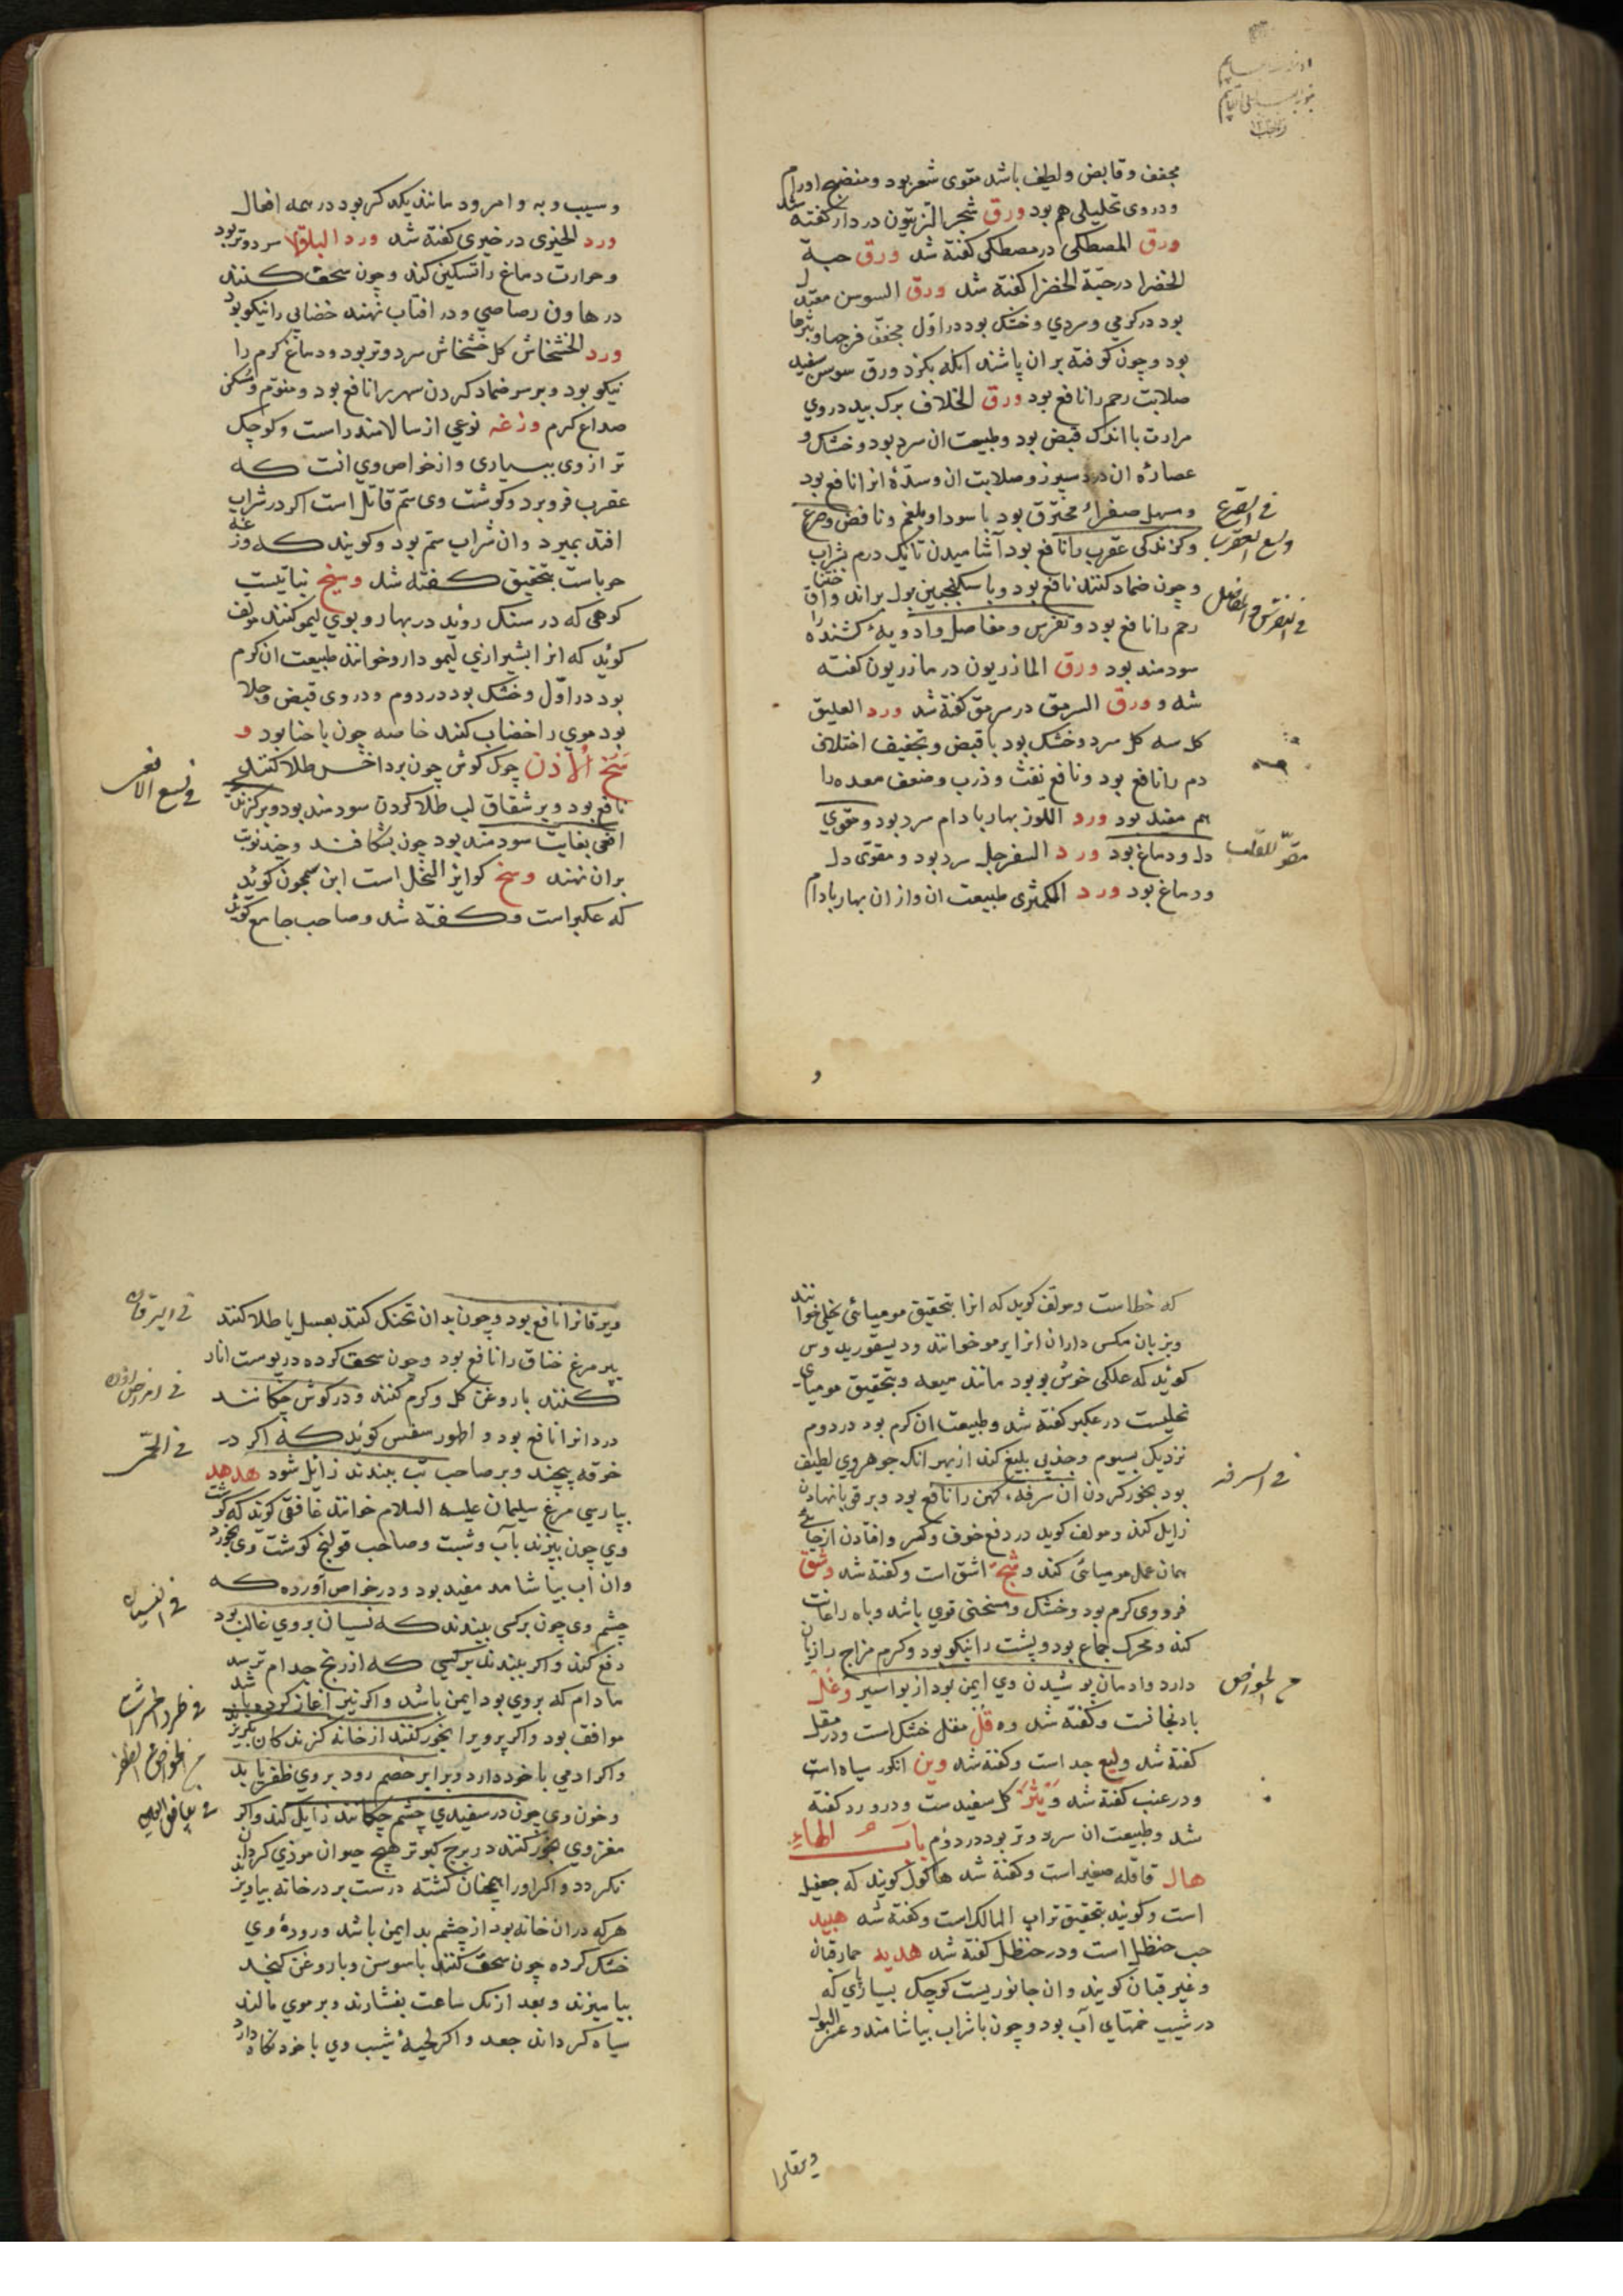 مجفف و قابض و لطیف باشد مقوی شعر بود و منضج اورام
و در وی تحلیلی هم بود ورق شجر الزیتون در دار کفته شد
ورق المصطکی در مصطکی کفته شد ورق حبة
الخضرا در حبّة الخضرا کفته شد ورق السوسن معتدل
بود در کرمی و سردی و خشک بود در اوّل مجفف
بود و چون کوفته بر ان پاشند اکله بکزد ورق سوسن سفید
صلابت رحم را نافع بود ورق الخلاف برک بید در وی
مرارت با اندک قبض بود و طبیعت ان سرد بود و خشک و
عصارهٔ ان درد سپرز و صلابت ان و سدّهٔ انرا نافع بود
و مسهل صفراء محترق بود با سودا و بلغم و نافض و صرع
فی الصرع
و کزندکی عقرب را نافع بود آشامیدن تا یک درم بشراب
ولسع العقرب
و چون ضماد کنند نافع بود و با سکنجبین بول براند و اختناق
رحم را نافع بود و نقرس و مفاصل و ادویهٔ کشنده را
فی النقرس و المفاصل
سودمند بود ورق المازریون در مازریون کفته
شد و ورق السرمق در سرمق کفته شد ورد العلیق
کل سه کل سرد و خشک بود با قبض و تجفیف اختلاف
دم را نافع بود و نافع نفث و ذرب و ضعف معده را
هم مفید بود ورد اللّوز بهار بادام سرد بود و مقوی
دل و دماغ بود ورد السفرجل سرد بود و مقوی دل
مقوّ للقلب
و دماغ بود ورد الکمثری طبیعت ان و از ان بهار بادام
و
و سیب و به و امرود مانند یکدکر بود در همه افعال
ورد الخیری در خیری کفته شد ورد الباقلا سرد و تر بود
و حرارت دماغ را تسکین کند و چون سحق کنند
در هاون رصاصی و در افتاب نهند خضابی را نیکو بود
ورد الخشخاش کل خشخاش سرد و تر بود و دماغ کرم را
نیکو بود و بر سر ضماد کردن سهر را نافع بود و منوّم و مسکن
صداع کرم وزغه نوعی از سالامندر است و کوچک
تر از وی بسیاری و از خواص وی انست که
عقرب فرو برد و کوشت وی سمّ قاتل است اکر در شراب
افتد بمیرد و ان شراب سم بود و کویند که وزغه
حرباست بتحقیق کفته شد وسیخ نباتیست
کوهی که در سنک روید در بهار و بوی لیمو کنند مولف
کوید که انرا بشیرازی لیمو دارو خوانند طبیعت ان کرم
بود در اوّل و خشک بود در دوم و در وی قبض و جلا
بود موی را خضاب کنند خاصه چون با حنا بود و
سخ الاذن چرک کوش چون بر داخس طلا کنند
نافع بود و بر شقاق لب طلا کردن سودمند بود و بر کزیدن
فی لسع الافعی
افعی بغایت سودمند بود چون بشکافند و چند نوبت
بران نهند وسخ کوایر النحل است ابن سمجون کوید
که عکبر است و کفته شد و صاحب جامع کوید
که خطاست و مولف کوید که انرا بتحقیق مومیائی نحلی خوانند
و بزبان مکس داران انرا برمو خوانند و دیسقوریدوس
کوید که علکی خوش بو بود مانند میعه و بتحقیق مومیای
نحلیست در عکبر کفته شد و طبیعت ان کرم بود در دوم
نزدیک بسیوم و جذبی بلیغ کند از بهر انک جوهر وی لطیف
بود بخور کردن ان سرفهٔ کهن را نافع بود و بر قوبا نهادن
فی السرفه
زایل کند و مولف کوید در دفع خوف و کسر و افتادن از جای
همان عمل مومیائی کند وشج اشق است و کفته شد وشق
فرو وی کرم بود و خشک و مسخنی قوی باشد و باه را اعانت
کند و محرک جماع بود و پشت را نیکو بود و کرم مزاج را زیان
دارد و ادمان پوشیدن وی ایمن بود از بواسیر وغل
من الخواص
بادنجانست و کفته شد وقل مقل خشک است و در مقل
کفته شد ولیع جد است و کفته شد وین انکور سیاه است
و در عنب کفته شد وتیر کل سفیدست و در ورد کفته
شد و طبیعت ان سرد و تر بود در دوّم باب الهاء
هال قاقله صغیر است و کفته شد هاکول کویند که جعفیل
است و کویند بتحقیق تراب الهالک است و کفته شد هبید
حب حنظل است و در حنظل کفته شد هدبه حمار قبان
و غیر قبان کویند و ان جانوریست کوچک بسیار پای که
در شیب خمهای آب بود و چون با شراب بیاشامند و عسر البول
ویرقانرا
ویرقانرا نافع بود و چون بدان تحنک کنند بعسل یا طلا کنند
فی الیرقان
بپر مرغ خناق را نافع بود و چون سحق کرده در پوست انار
کنند با روغن کل و کرم کنند و در کوش چکانند
درد انرا نافع بود و اطهورسفس کوید که اکر در
فی الحمی
خرقه پیچند و بر صاحب تب بندند زایل شود هدهد
بپارسی مرغ سلیمان علیه السلام خوانند غافقی کوید که کوشت
وی چون بپزند بآب و شبت و صاحب قولنج کوشت وی بخورد
و ان اب بیاشامد مفید بود و در خواص آورده که
چشم وی چون بر کسی بندند که نسیان بر وی غالب بود
فی النسیان
دفع کند و اکر بندند بر کسی که از رنج جدام ترسد
مادام که بر وی بود ایمن باشد و اکر نیز آغاز کرده باشد
موافق بود و اکر پر ویرا بخور کنند از خانه کزندکان بکریزند
فی طرد الحشرات
و اکر ادمی با خود دارد و برابر خصم رود بر وی ظفر یابد
من الخواص الظفر
و خون وی چون در سفیدی چشم چکانند زایل کند و اکر
فی بیاض العین
مغز وی بخور کنند در برج کبوتر هیچ حیوان موذی کرد ان
نکردد و اکر او را همچنان کشته درست بر در خانه بیاویزند
هرکه در ان خانه بود از چشم بد ایمن باشد و رودهٔ وی
خشک کرده چون سحق کنند با سوسن و با روغن کنجد
بیامیزند و بعد از یک ساعت بفشارند و بر موی مالند
سیاه کرداند جعد و اکر لحیهٔ شیب وی با خود نکاه دارد